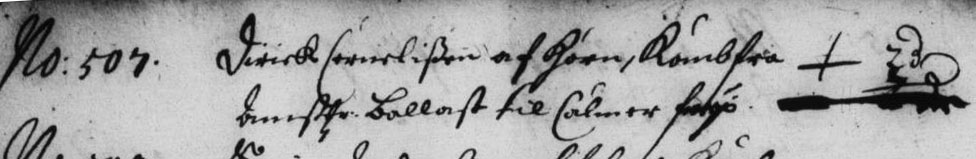 No: 507. Dirick Cornelißen af Horn, Kombst fra + 23
Amstr. Ballast til Calmer